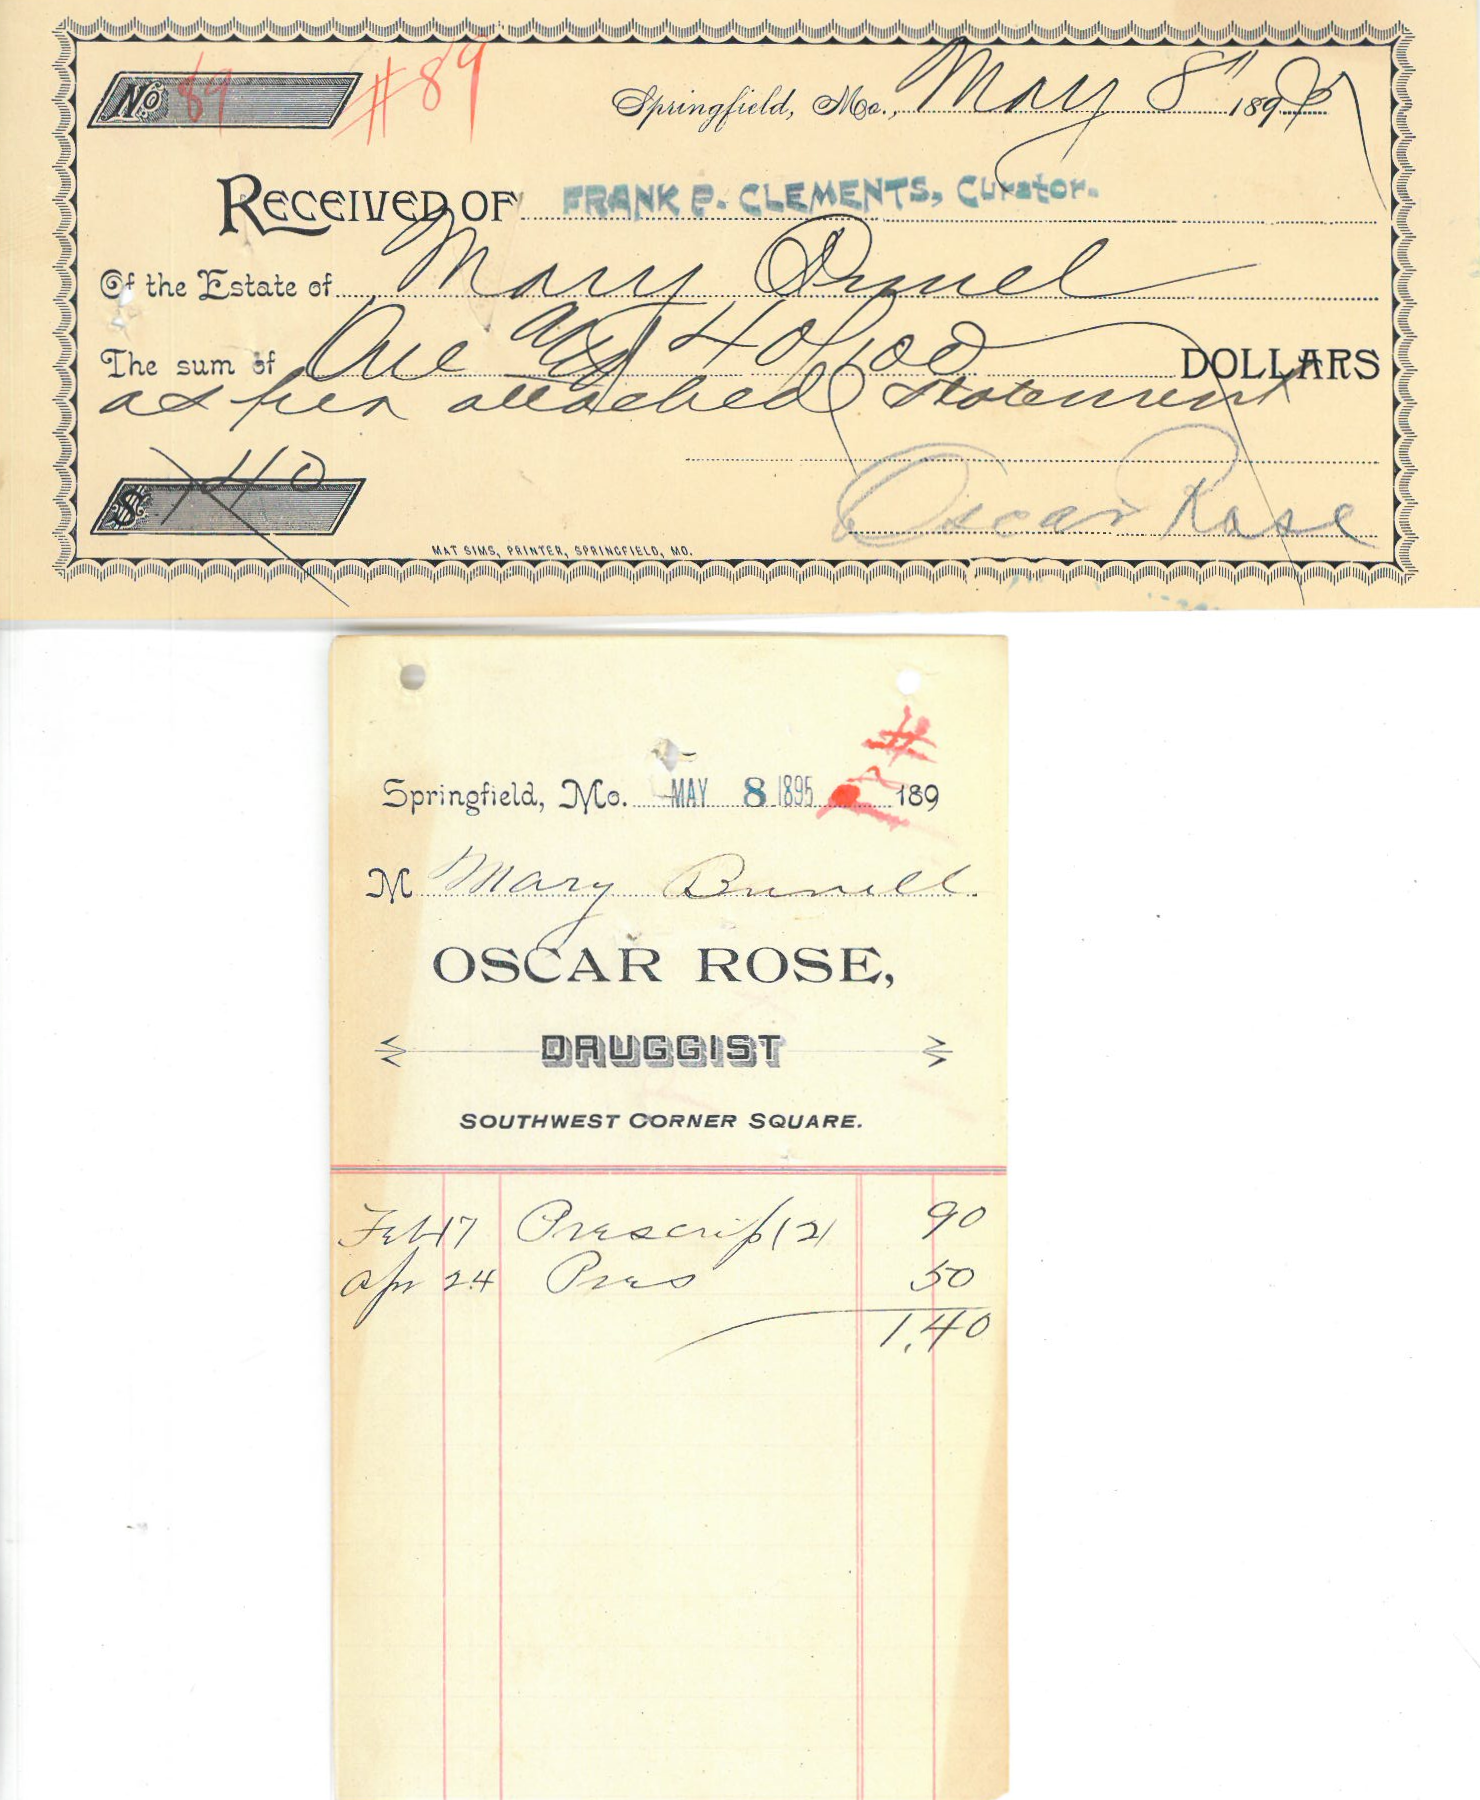 No. 89 #89
Springfield, Mo., May 8" 1895
RECEIVED OF FRANK P. CLEMENTS, Curator.
Of the Estate of Mary
The sum of One and 40/100 DOLLARS
as per attached statement
$ 1 40 Oscar Rose
MAT SIMS, PRINTER, SPRINGFIELD, MO.
#
Springfield, Mo. MAY 8 1895 189
M Mary
OSCAR ROSE,
DRUGGIST
SOUTHWEST CORNER SQUARE.
Feb 17 Prescrip (2) 90
Apr 24 Pres 50
1.40